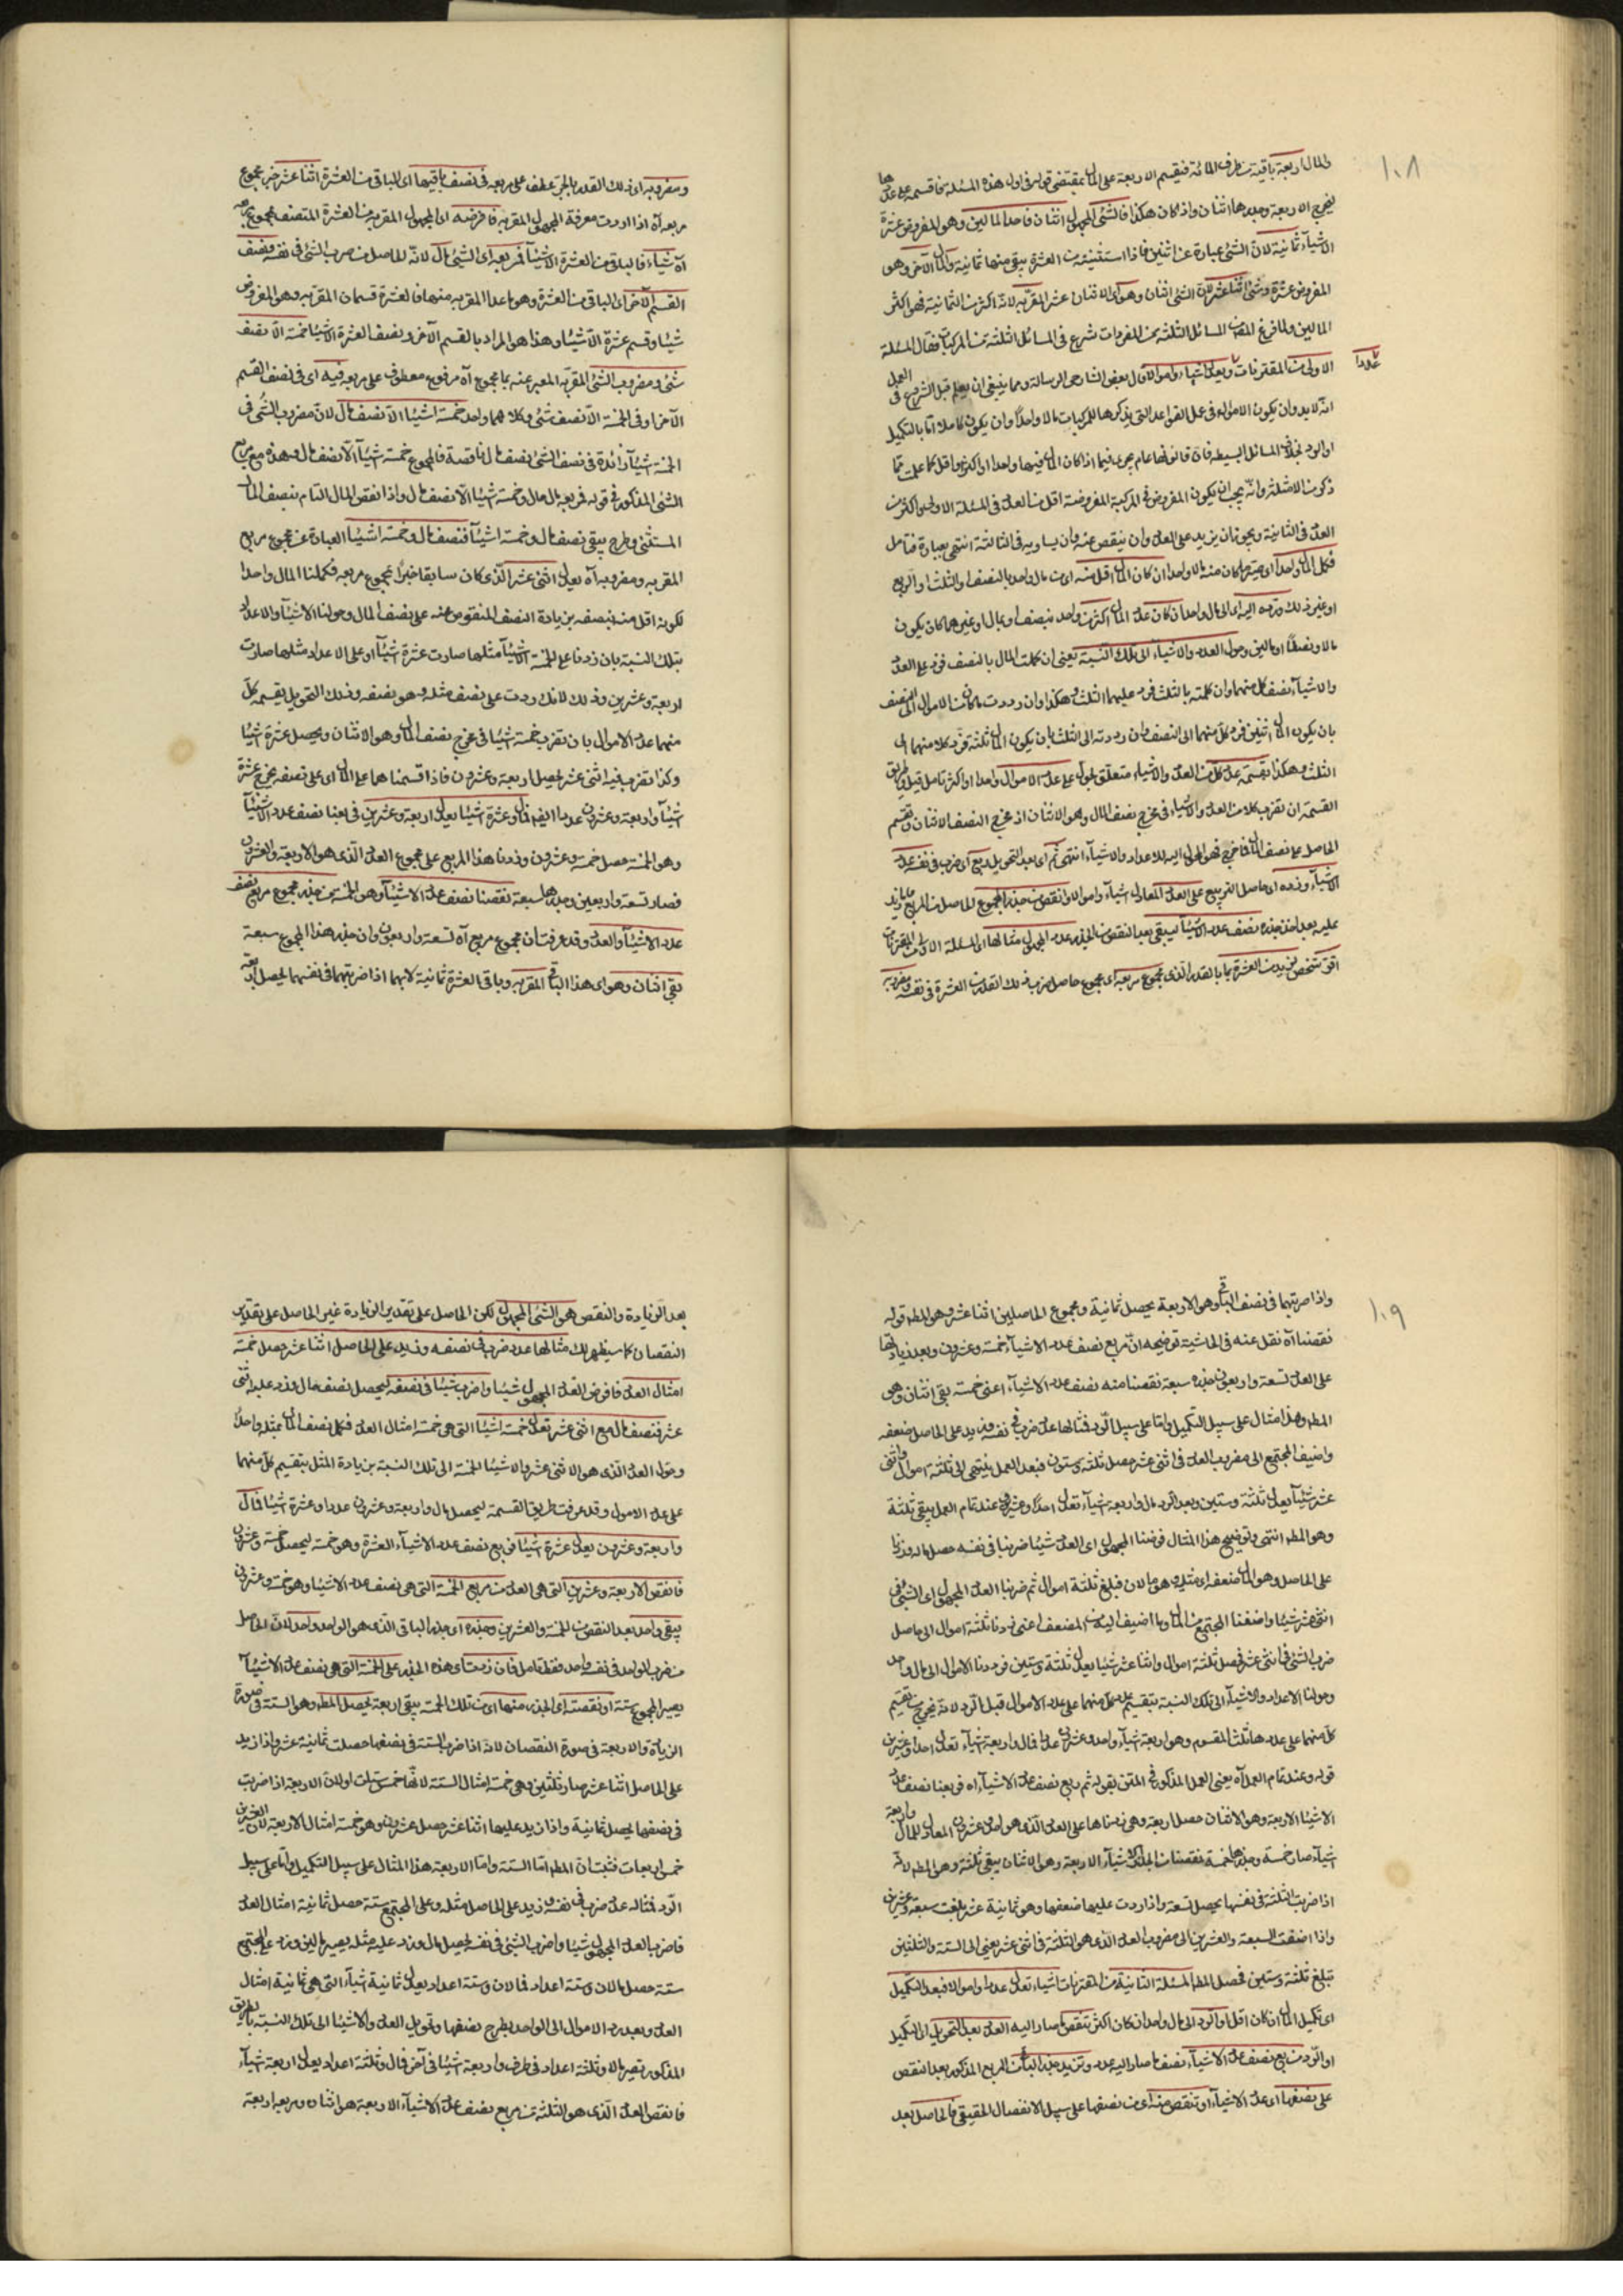 ١٠٨
المال اربعة باقية من طرف المائة فيقسم الاربعة على المال بمقتضى قوله فى اول هذه المسئلة فاقسمه على عددها
يخرج الاربعة وجذرها اثنان واذا كان هكذا فالشئ المجهول اثنان فاحد المالين وهو المفروض عشرة
الا شيئا ثمانية لان الشئ عبارة عن اثنين فاذا استثنيته من العشرة يبقى منها ثمانية والمال الآخر وهو
المفروض عشرة وشئ اثنا عشر لان الشئ اثنان وهو اى الاثنان عشر المقر به لانه اكثر من الثمانية فهو اكثر
المالين ولما فرغ المص من المسائل الثلثة من المفردات شرع فى المسائل الثلثة من المركبات فقال المسئلة
الاولى من المقترنات عددا يعدل اشياء واموالا قال بعض الشارحى الرسالة ومما ينبغى ان يعلم قبل الشروع فى العمل
انه لا بد وان يكون الاموال فى عمل القواعد التى يذكرها للمركبات مالا واحدا وان يكون كاملا اما بالتكميل
او الرد بخلاف المسائل البسيطة فان قانونها عام يجرى فيما اذا كان المال فيها واحدا او اكثر او اقل كما علمت مما
ذكر من الامثلة وانه يجب ان يكون المفروض فى المركبة المفروضة اقل من العدد فى المسئلة الاولى واكثر من
العدد فى الثانية ويجوز ان يزيد على العدد وان ينقص عنه وان يساويه فى الثالثة انتهى بعبارة فتامل
فكمل المال واحدا اى صيره ما كان منه مالا واحدا ان كان المال اقل منه اى من مال واحد بالنصف او الثلث او الربع
او غير ذلك ورده اليه اى الى مال واحد ان كان عدد المال اكثر من واحد بنصف او بمال او غيرهما كان يكون
مالا ونصفا او مالين وحول العدد والاشياء الى تلك النسبة يعنى ان كملت المال بالنصف فزد على العدد
والاشياء نصف كل منهما وان كملته بالثلث فزد عليهما الثلث وهكذا وان رددت ما كان من الاموال الى النصف
بان يكون المال اثنين فرد كل منهما الى النصف وان رددته الى الثلث بان يكون المال ثلثة فرد كلا منهما الى
الثلث وهكذا بقسمة عدد كل من العدد والاشياء متعلق بحول على عدد الاموال واحدا او اكثر تامل قيل وطريق
القسمة ان تضرب كلا من العدد والاشياء فى مخرج نصف المال وهو الاثنان اذ مخرج النصف الاثنان وتقسم
الحاصل على نصف المال فما خرج فهو المحول اليه للاعداد والاشياء انتهى ثم اى بعد التحويل ربع اى ضرب فى نفسه عدد
الاشياء وزده اى حاصل التربيع على العدد المعادل اشياء واموالا وانقص من جذر المجموع الحاصل من المربع وما زيد
عليه بعد اخذ جذره نصف عدد الاشياء ليبقى بعد النقص من الجذر عدد المجهول مثالها اى المسئلة الاولى من المقترنات
اقر شخص لزيد من العشرة بما بالقدر الذى مجموع مربعه اى مجموع حاصل ضرب ذلك القدر من العشرة فى نفسه ومضروبه
ومضروبه اى ذلك القدر بالجر عطف على مربعه فى نصف باقيها اى الباقى من العشرة اثنا عشر خبر مجموع
مربعه آه اذا اردت معرفة المجهول المقر به فافرضه اى المجهول المقر به من العشرة المتصف بمجموع مربعه
آه شيئا فالباقى من العشرة الا شيئا فمربعه اى الشئ مال لانه الحاصل من ضرب الشئ فى نفسه ونصف
القسم الآخر اى الباقى من العشرة وهو ما عدا المقر به منها فالعشرة قسمان المقر به وهو المفروض
شيئا وقسم عشرة الا شيئا وهذا هو المراد بالقسم الآخر ونصف العشرة الا شيئا خمسة الا نصف
شئ ومضروب الشئ المقر به المعبر عنه بما مجموع آه مرفوع معطوف على مربعه فيه اى فى نصف القسم
الآخر او فى الخمسة الا نصف شئ وكلاهما واحد خمسة اشيئا الا نصف مال لان مضروب الشئ فى
الخمسة شيئا زائدة فى نصف الشئ نصف مال ناقصة فالمجموع خمسة اشيئا الا نصف مال وهذه مع مربع
الشئ المذكور فى قوله فمربعه مال مال وخمسة اشيئا الا نصف مال واذا نقص المال التام بنصف المال
المستثنى وطرح يبقى نصف مال وخمسة اشيئا فنصف مال وخمسة اشيئا العبارة عن مجموع مربع
المقر به ومضروبه آه يعدل اثنى عشر الذى كان سابقا خبرا لمجموع مربعه فكملنا المال واحدا
لكونه اقل منه بنصفه بزيادة النصف المنقوص عنه على نصف المال وحولنا الاشياء والاعداد
بتلك النسبة بان زدنا على الخمسة الاشيئا مثلها صارت عشرة اشيئا وعلى الاعداد مثلها صارت
اربعة وعشرين وذلك لانك رددت على نصف مثله وهو نصفه وذلك التحويل بقسمة كل
منهما على عدد الاموال بان تضرب خمسة اشيئا فى مخرج نصف المال وهو الاثنان ويحصل عشرة اشيئا
وكذا تضرب فيه اثنى عشر ليحصل اربعة وعشرون فاذا قسمنا هما على المال اى على نصفه يخرج عشرة
اشيئا واربعة وعشرون عددا ايضا فمال وعشرة اشيئا يعدل اربعة وعشرين فربعنا نصف عدد الاشيئا
وهو الخمسة حصل خمسة وعشرون وزدنا هذا المربع على مجموع العدد الذى هو الاربعة والعشرون
فصار تسعة واربعين وجذرها سبعة نقصنا نصف عدد الاشيئا وهو الخمسة من جذر مجموع مربع نصف
عدد الاشيئا والعدد وقد عرفت ان مجموع مربع آه تسعة واربعون وان جذر هذا المجموع سبعة
بقى اثنان وهو اى هذا الباقى المقر به وباقى العشرة ثمانية لانهما اذا ضربتهما فى نفسهما يحصل اربعة
١٠٩
واذا ضربتهما فى نصف الباقى وهو الاربعة يحصل ثمانية ومجموع الحاصلين اثنا عشر وهو المطم قوله
نقصنا آه نقل عنه فى الحاشية توضيحه ان مربع نصف عدد الاشياء خمسة وعشرون وبعد زيادتها
على العدد تسعة واربعون جذره سبعة نقصنا منه نصف عدد الاشياء اعنى خمسة بقى اثنان وهو
المطم وهذا مثال على سبيل التكميل واما على سبيل الرد فمثالها عدد ضرب فى نفسه وزيد على الحاصل ضعفه
واضيف المجتمع الى مضروب العدد فى اثنى عشر حصل ثلثة وستون فبعد العمل ينتهى الى ثلثة اموال واثنى
عشر شيئا يعدل ثلثة وستين وبعد الرد مال واربعة اشياء تعدل احدا وعشرين عند تمام العمل يبقى ثلثة
وهو المطم انتهى وتوضيح هذا المثال فرضنا المجهول اى العدد شيئا ضربنا فى نفسه حصل مال وزدنا
على الحاصل وهو المال ضعفه اى مثليه وهو مالان فبلغ ثلثة اموال ثم ضربنا العدد المجهول اى الشئ فى
اثنى عشر شيئا واضفنا المجتمع من المال وما اضيف اليه من المضعف اعنى زدنا ثلثة اموال الى حاصل
ضرب الشئ فى اثنى عشر فحصل ثلثة اموال واثنا عشر شيئا يعدل ثلثة وستين فرددنا الاموال الى مال واحد
وحولنا الاعداد والاشياء الى تلك النسبة بتقسيم عدد كل منهما على عدد الاموال قبل الرد لانه يخرج من تقسيم
كل منهما على عددها ثلث المقسوم وهو اربعة اشياء واحد وعشرون عددا فمال واربعة اشياء تعدل احدا وعشرين
قوله وعند تمام العمل آه يعنى العمل المذكور فى المتن بقوله ثم ربع نصف عدد الاشياء آه فربعنا نصف عدد
الاشيئا الاربعة وهو الاثنان حصل اربعة وهى زدناها على العدد الذى هو احد وعشرون المعادل للمال واربعة
اشياء صار خمسة وجذرها خمسة نقصنا من الجذر الاشياء الاربعة وهو الاثنان يبقى ثلثة وهو المطم لانه
اذا ضربت الثلثة فى نفسها يحصل تسعة واذا زدت عليها ضعفها وهو ثمانية عشر بلغت سبعة وعشرين
واذا اضفت السبعة والعشرين الى مضروب العدد الذى هو الثلثة فى اثنى عشر يعنى الى الستة والثلثين
تبلغ ثلثة وستين فحصل المطم المسئلة الثانية من المقترنات اشياء تعدل عددا واموالا فبعد التكميل
اى تكميل المال ان كان اقل او الرد الى مال واحد ان كان اكثر تنقص ما صار اليه العدد بعد التحويل اى التكميل
او الرد من مربع نصف عدد الاشياء نصف ما صار اليه عدد وتزيد جذر الباقى من المربع المذكور بعد النقص
على نصفها اى عدد الاشياء او تنقص منه اى من نصفها على سبيل الانفصال الحقيقى فالحاصل بعد
بعد الزيادة والنقص هو الشئ المجهول لكن الحاصل على تقدير الزيادة غير الحاصل على تقدير
النقصان كما سيظهر لك مثالها عدد ضرب فى نصفه وزيد على الحاصل اثنا عشر حصل خمسة
امثال العدد فافرض العدد المجهول شيئا واضرب شيئا فى نصفه ليحصل نصف مال وزد عليه اثنى
عشر فنصف مال مع اثنى عشر تعدل خمسة اشيئا التى هى خمسة امثال العدد فكمل نصف المال بمثله واحدا
وحول العدد الذى هو الاثنى عشر والاشيئا الخمسة الى تلك النسبة بزيادة المثل بتقسيم كل منهما
على عدد الاموال وقد عرفت طريق القسمة ليحصل مال واربعة وعشرون عددا وعشرة اشيئا فمال
واربعة وعشرون يعدل عشرة اشيئا فربع نصف عدد الاشياء العشرة وهو خمسة ليحصل خمسة وعشرون
فانقص الاربعة وعشرين التى هى العدد من مربع الخمسة التى هى نصف عدد الاشيئا وهو خمسة وعشرون
يبقى واحد بعد النقص من الخمسة والعشرين وجذره اى جذر الباقى الذى هو الواحد واحد لان الحاصل
من ضرب الواحد فى نفسه واحد فقط تامل فان زدت اى هذه الجذر على الخمسة التى هى نصف عدد الاشيئا
يصير المجموع ستة او نقصته اى الجذر منها اى من تلك الخمسة يبقى اربعة يحصل المطم وهو الستة فى صورة
الزيادة والاربعة فى صورة النقصان لانه اذا ضرب الستة فى نصفها حصلت ثمانية عشر واذا زيد
على الحاصل اثنا عشر صار ثلثين وهى خمسة امثال الستة لانها خمس ستات اولان الاربعة اذا ضربت
فى نصفها يحصل ثمانية واذا زيد عليها اثنا عشر حصل عشرون وهو خمسة امثال الاربعة لان العشرين
خمس اربعات فثبت ان المطم اما الستة واما الاربعة هذا المثال على سبيل التكميل واما على سبيل
الرد فمثاله عدد ضرب فى نفسه وزيد على الحاصل مثله وعلى المجتمع ستة حصل ثمانية امثال العدد
فاضرب العدد المجهول شيئا واضرب الشئ فى نفسه ليحصل مال وزد عليه مثله يصير مالين وزد على المجتمع
ستة حصل مالان وستة اعداد فمالان وستة اعداد يعدل ثمانية اشياء التى هى ثمانية امثال
العدد وبعد رد الاموال الى الواحد بطرح نصفها وتحويل العدد والاشيئا الى تلك النسبة بالطريق
المذكور تصير مالا وثلثة اعداد فى طرف واربعة اشيئا فى آخر فمال وثلثة اعداد يعدل اربعة اشياء
فانقص العدد الذى هو الثلثة من مربع نصف عدد الاشياء الاربعة هو اثنان ومربعه اربعة